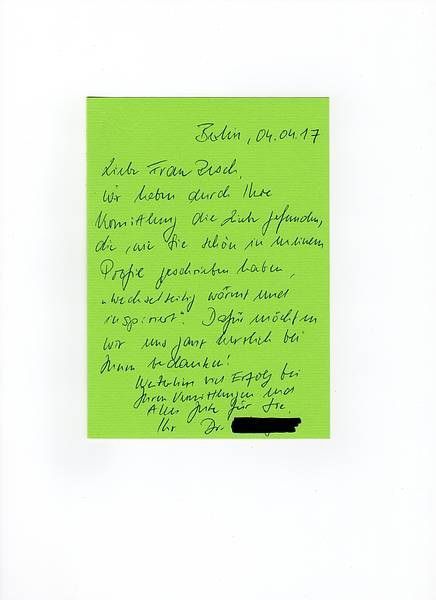 Berlin, 04.04.17
Liebe Frau
wir haben durch Ihre
Vermittlung die Liebe gefunden,
die, wie Sie schön in meinem
Profil geschrieben haben,
„wechselseitig wärmt und
inspiriert". Dafür möchten
wir uns ganz herzlich bei
Ihnen bedanken!
Weiterhin viel Erfolg bei
Ihren Vermittlungen und
Alles Gute für Sie.
Ihr Dr.